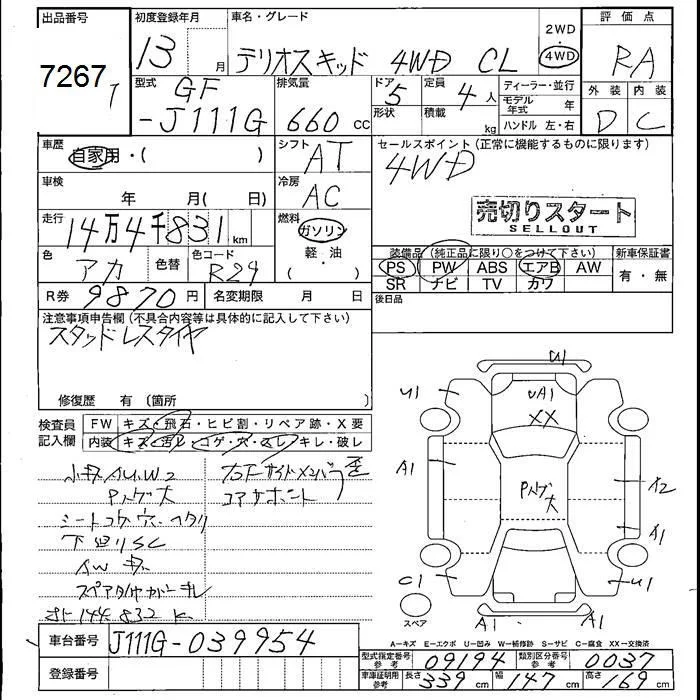 出品番号
7267
初度登録年月
13 月
車名・グレード
テリオスキッド 4WD CL
2WD
4WD
評価点
RA
型式
GF
-J111G
排気量
660 cc
ドア
5
形状
定員
4 人
積載 kg
ディーラー・並行
モデル年式 年
ハンドル 左・右
外装 内装
D C
車歴
自家用・( )
シフト
AT
セールスポイント(正常に機能するものに限ります)
4WD
車検
年 月( 日)
冷房
AC
売切りスタート
SELLOUT
走行
14万4千831 km
燃料
ガソリン
軽・油
( ・ )
色
アカ
色替
色コード
R29
装備品(純正品に限り○をつけて下さい)
新車保証書
PS PW ABS エアB AW
有・無
SR ナビ TV カワ
R券 9870 円
名変期限 月 日
後日品
注意事項申告欄(不具合内容等は具体的に記入して下さい)
スタッドレスタイヤ
修復歴 有(箇所 )
検査員
記入欄
FW キズ・飛石・ヒビ割・リペア跡・X要
内装 キズ・汚レ・コゲ・穴・スレ・キレ・破レ
小キズ A.U.W2
Pハゲ大
右下サイドメンバー歪
コアサポート
シートコゲ穴・ヘタリ
下回りSC
AWキズ
スペアタイヤカバーキレ
144.832 K
U1
U1
UA1
XX
A1
Pハゲ大
A2
A1
C1
U1
スペア
A1
A1
A-キズ E-エクボ U-凹み W-補修跡 S-サビ C-腐食 XX-交換済
車台番号 J111G-039954
登録番号
型式指定番号
参考
09194
類別区分番号
参考
0037
車庫証明用
参考
長さ 339 cm 幅 147 cm 高さ 169 cm